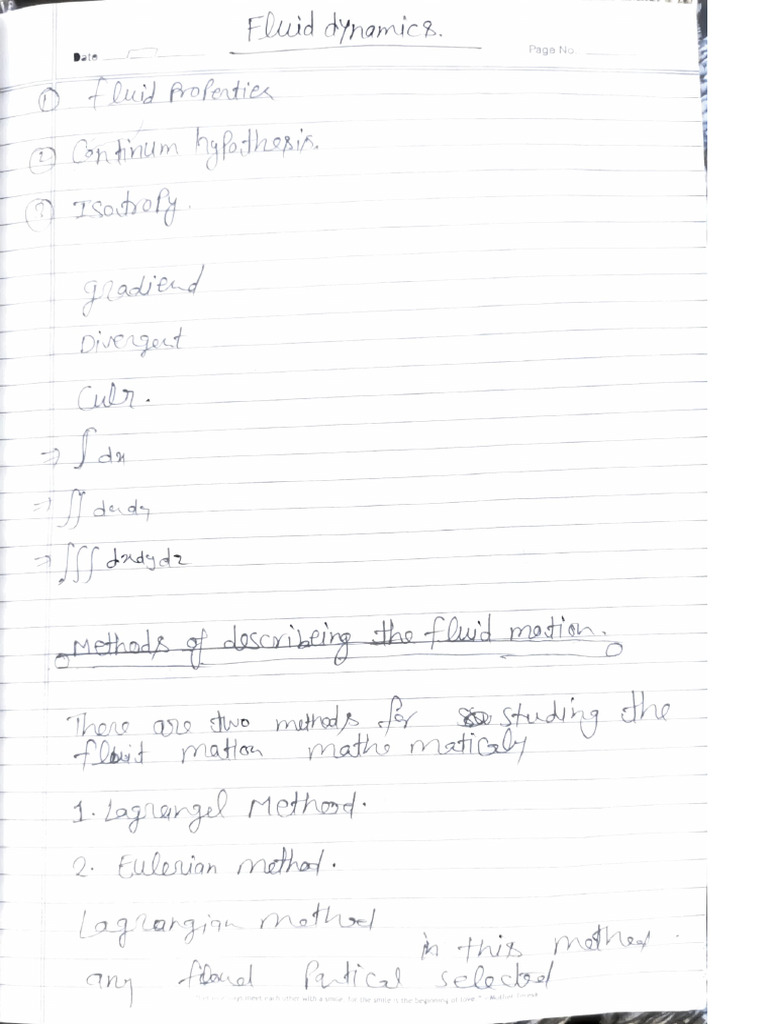 Fluid dynamics.
Date Page No.
① fluid Properties
② Continum hypothesis.
③ Isotropy.
gradiend
Divergent
Culr.
⇒ ∫ dx
⇒ ∫∫ dxdy
⇒ ∫∫∫ dxdydz
Methods of describeing the fluid motion.
There are two methods for studing the
fluit mation mathe maticaly
1. Lagrangel Method.
2. Eulerian method.
Lagrangian method
in this method
any Partical selected